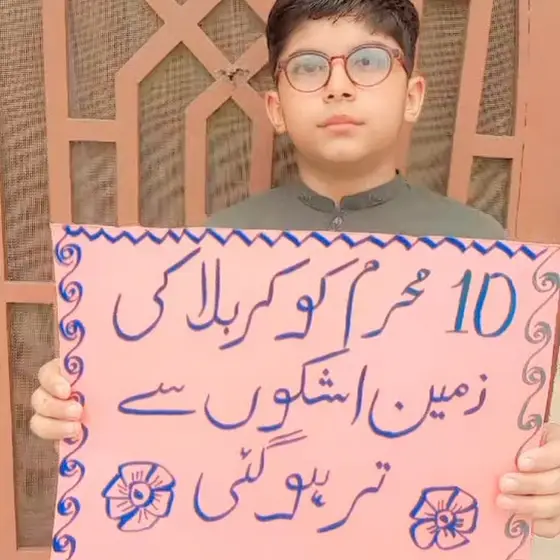 10 محرم کو کربلا کی
زمین اشکوں سے
تر ہو گئی